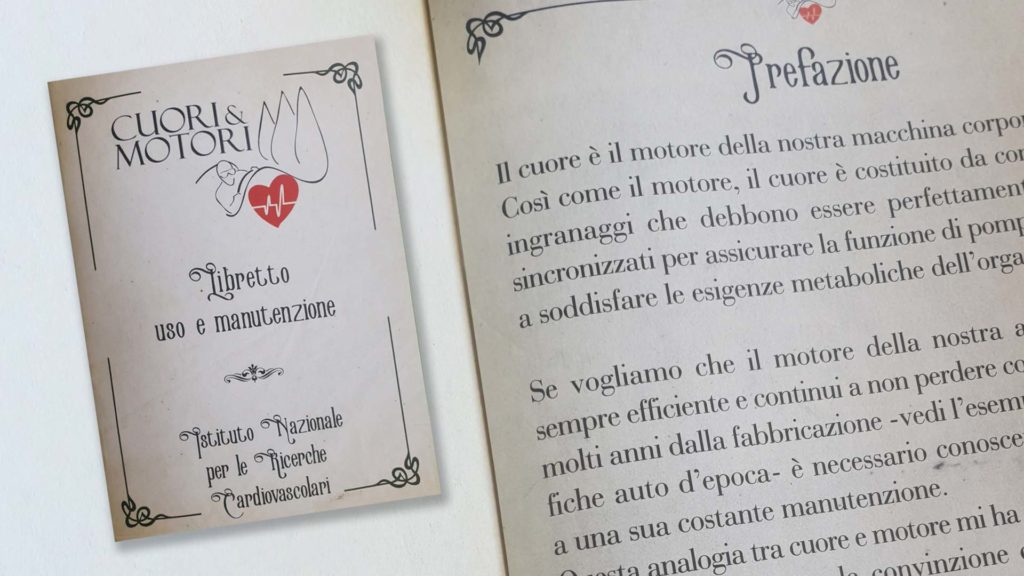 CUORI &
MOTORI
Libretto
uso e manutenzione
Istituto Nazionale
per le Ricerche
Cardiovascolari
Prefazione
Il cuore è il motore della nostra macchina
Così come il motore, il cuore è costituito da
ingranaggi che debbono essere
sincronizzati per assicurare la funzione di
a soddisfare le esigenze metaboliche
Se vogliamo che il motore della nostra
sempre efficiente e continui a non perdere
molti anni dalla fabbricazione -vedi
fiche auto d'epoca- è necessario
a una sua costante manutenzione.
analogia tra cuore e motore mi ha
convinzione